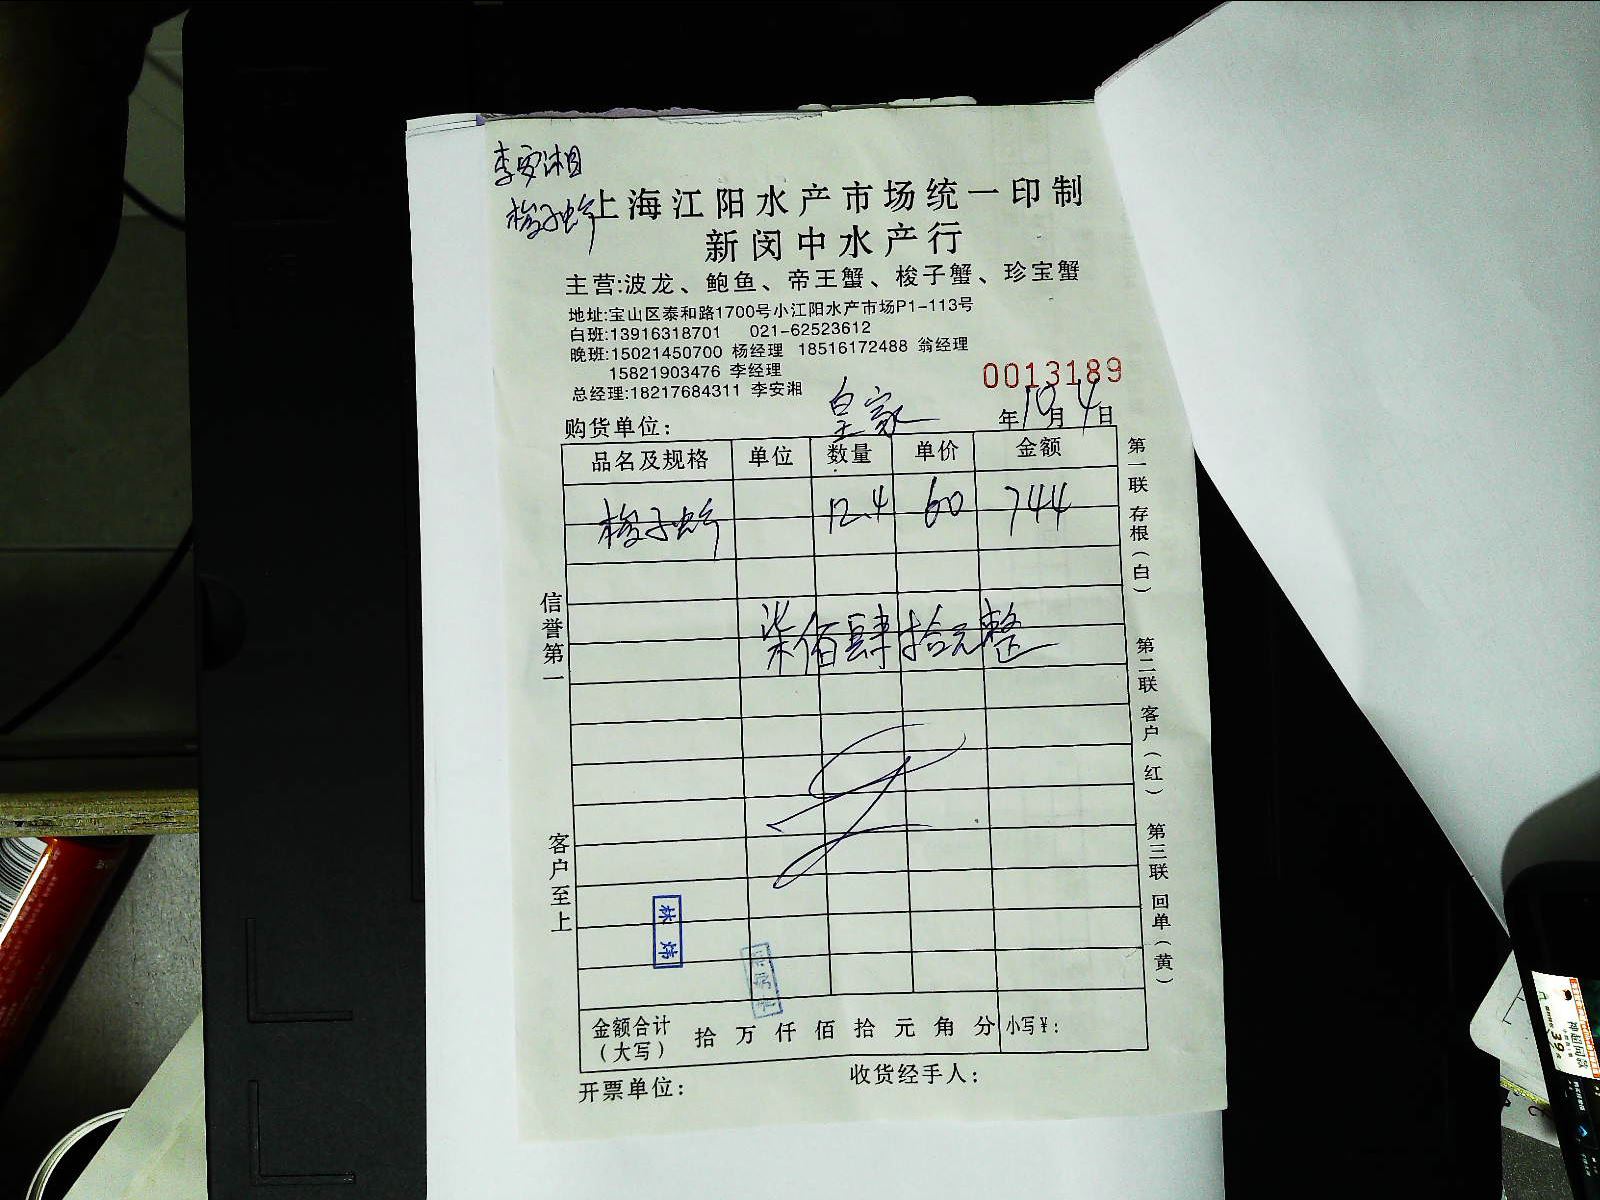 李安湘
梭子蚧
上海江阳水产市场统一印制
新闵中水产行
主营:波龙、鲍鱼、帝王蟹、梭子蟹、珍宝蟹
地址:宝山区泰和路1700号小江阳水产市场P1-113号
白班:13916318701 021-62523612
晚班:15021450700 杨经理 18516172488 翁经理
15821903476 李经理
总经理:18217684311 李安湘
0013189
购货单位: 皇家 年10月4日
品名及规格 单位 数量 单价 金额
梭子蚧 12.4 60 744
柒佰肆拾元整
信誉第一
客户至上
第一联 存根(白)
第二联 客户(红)
第三联 回单(黄)
林炜
金额合计(大写) 拾万仟佰拾元角分 小写¥:
开票单位: 收货经手人: